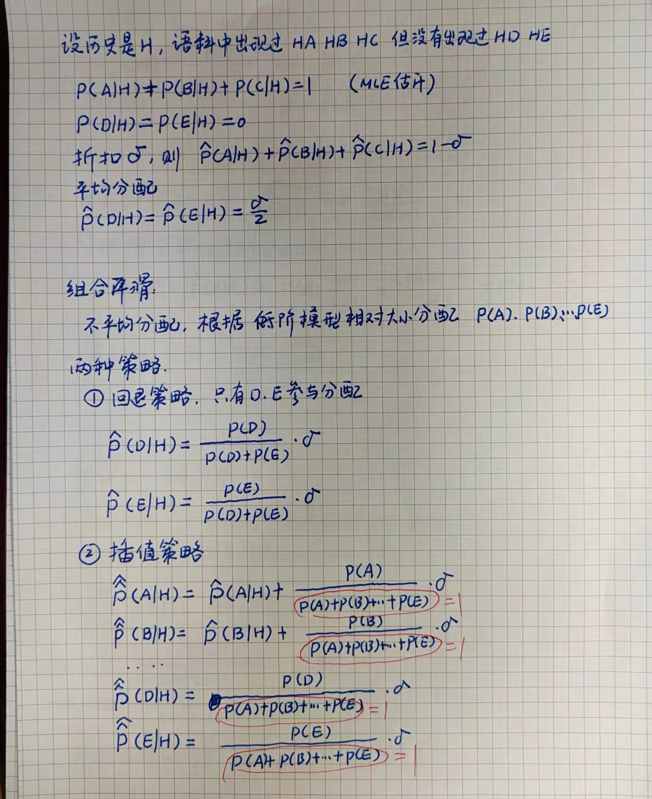 设历史是H, 语料中出现过 HA HB HC 但没有出现过 HD HE
P(A|H)+P(B|H)+P(C|H)=1 (MLE估计)
P(D|H)=P(E|H)=0
折扣σ, 则 P̂(A|H)+P̂(B|H)+P̂(C|H)=1-σ
平均分配
P̂(D|H)=P̂(E|H)=σ/2
组合平滑:
不平均分配, 根据低阶模型相对大小分配 P(A). P(B)...P(E)
两种策略.
① 回退策略. 只有D.E参与分配
P̂(D|H)= P(D)/(P(D)+P(E)) ·σ
P̂(E|H)= P(E)/(P(D)+P(E)) ·σ
② 插值策略
P̂̂(A|H)= P̂(A|H)+ P(A)/(P(A)+P(B)+...+P(E)) ·σ =1
P̂̂(B|H)= P̂(B|H)+ P(B)/(P(A)+P(B)+...+P(E)) ·σ =1
.....
P̂̂(D|H)= P(D)/(P(A)+P(B)+...+P(E)) ·σ =1
P̂̂(E|H)= P(E)/(P(A)+P(B)+...+P(E)) ·σ =1